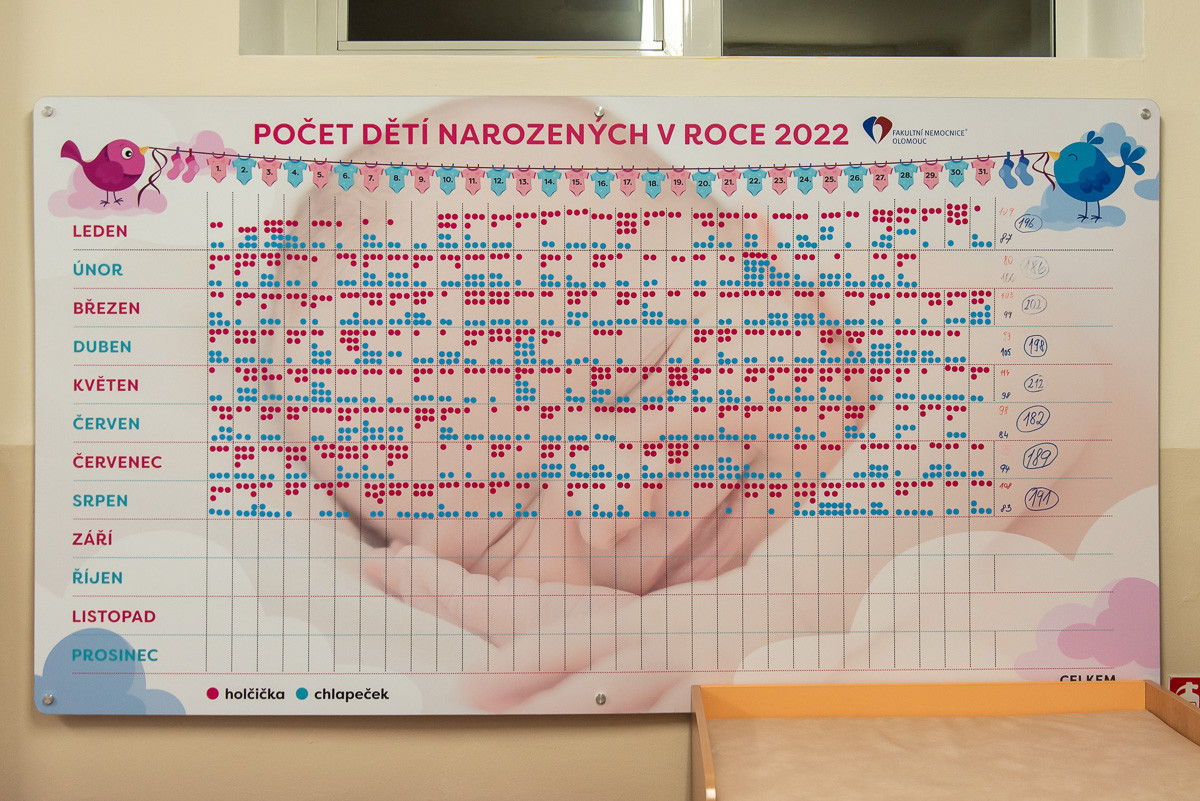 POČET DĚTÍ NAROZENÝCH V ROCE 2022
FAKULTNÍ NEMOCNICE
OLOMOUC
1. 2. 3. 4. 5. 6. 7. 8. 9. 10. 11. 12. 13. 14. 15. 16. 17. 18. 19. 20. 21. 22. 23. 24. 25. 26. 27. 28. 29. 30. 31.
LEDEN 109 196
87
ÚNOR 80 186
BŘEZEN 103 202
99
DUBEN 93 198
105
KVĚTEN 212
98
ČERVEN 98 182
84
ČERVENEC 189
94
SRPEN 108 191
83
ZÁŘÍ
ŘÍJEN
LISTOPAD
PROSINEC
holčička chlapeček
CELKEM